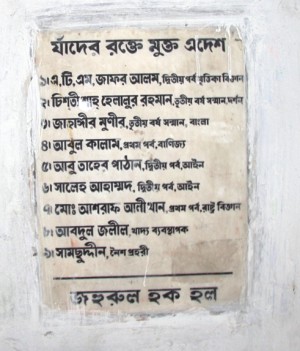 যাঁদের রক্তে মুক্ত এদেশ
১। এ,টি,এম,জাফর আলম, দ্বিতীয় পর্ব, মৃত্তিকা বিজ্ঞান
২। চিশতী শাহ হেলালুর রহমান, তৃতীয় বর্ষ সম্মান, দর্শন
৩। জাহাঙ্গীর মুনীর, তৃতীয় বর্ষ সম্মান, বাংলা
৪। আবুল কালাম, প্রথম পর্ব, বাণিজ্য
৫। আবু তাহের পাঠান, দ্বিতীয় পর্ব, আইন
৬। সালেহ আহাম্মদ, দ্বিতীয় পর্ব, আইন
৭। মোঃ আশরাফ আলী খান, প্রথম পর্ব, রাষ্ট্র বিজ্ঞান
৮। আবদুল জলীল, খাদ্য ব্যবস্থাপক
৯। সামছুদ্দীন, নৈশ প্রহরী
জহুরুল হক হল